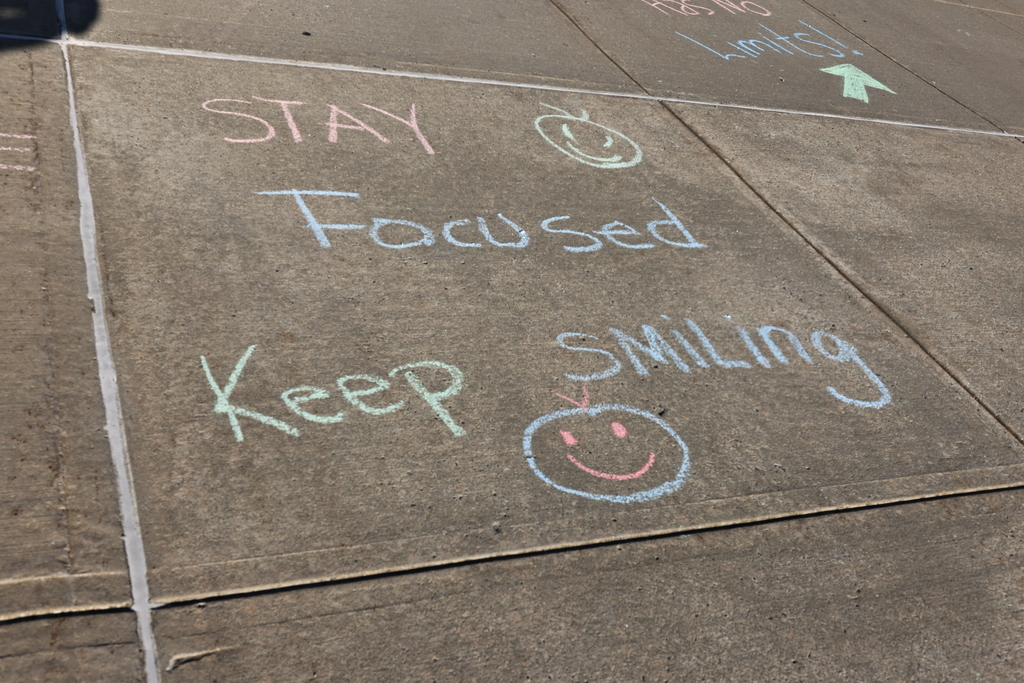 Limits!
STAY
Focused
Keep SMiLing